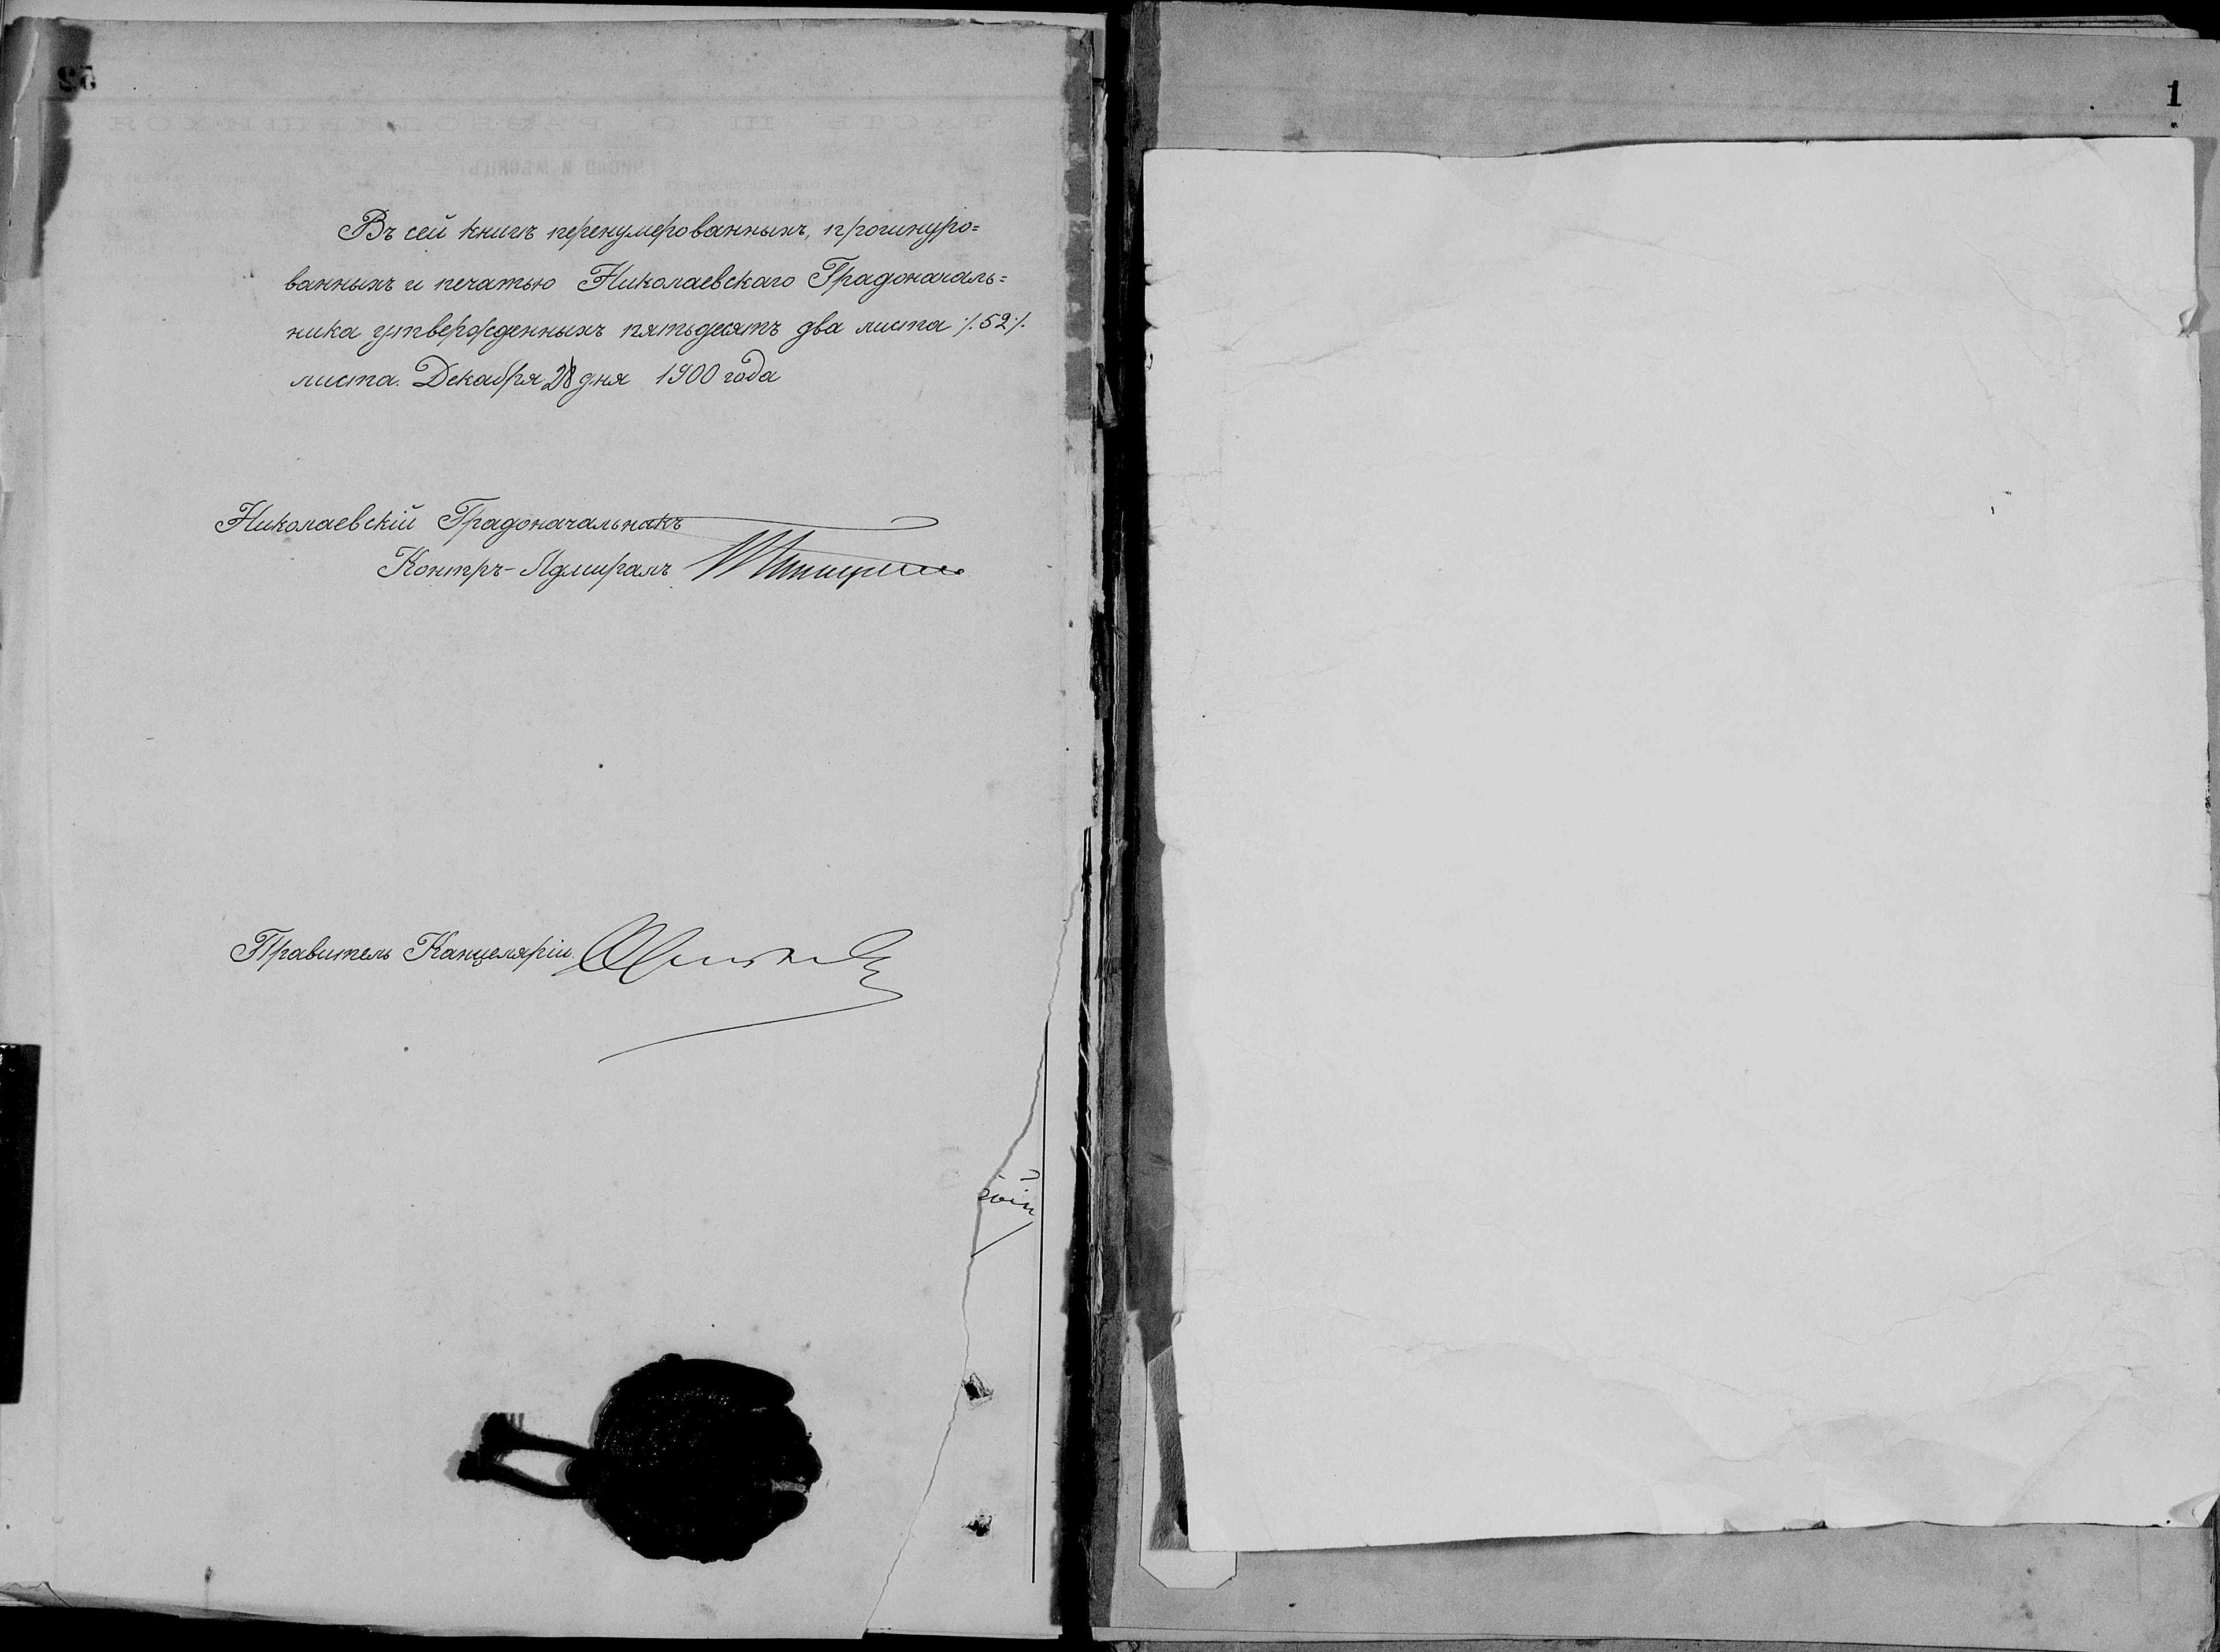 Въ сей книгѣ перенумерованныхъ, прошнуро=
ванныхъ и печатью Николаевскаго Градоначаль=
ника утвержденныхъ пятьдесятъ два листа ⁒52⁒
листа. Декабря 28 дня 1900 года
Николаевскій Градоначальникъ
Контръ-Адмиралъ
Правитель Канцеляріи
52
1